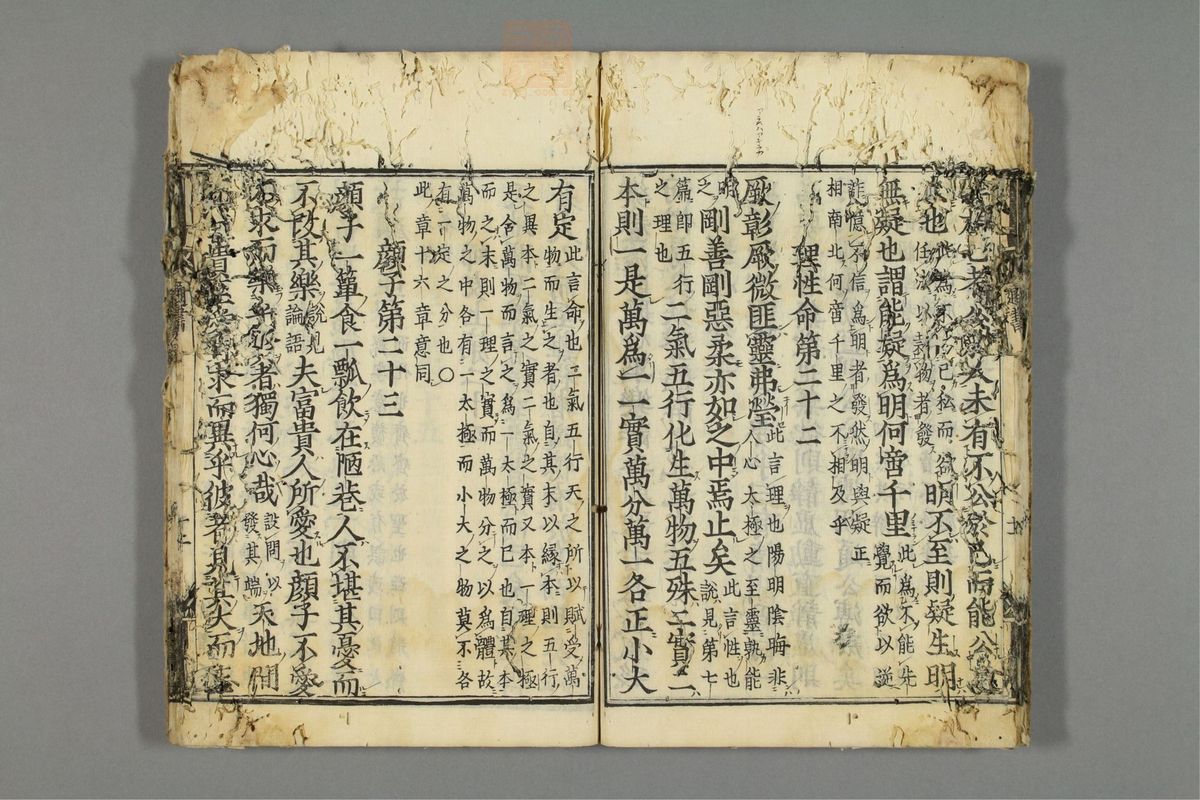 於己者公於人未有不公於己而能公於
人也 此為不勝己私而欲
任法以裁物者發 明不至則疑生明
無疑也謂能疑爲明何啻千里 此爲不能先
覺而欲以逆
詐億不信爲明者發然明與疑正
相南北何啻千里之不相及乎
理性命第二十二
厥彰厥微匪靈弗瑩 此言理也陽明陰晦非
人心太極之至靈孰能
明
之 剛善剛惡柔亦如之中焉止矣 此言性也
說見第七
篇即五行
之理也 二氣五行化生萬物五殊二實二
本則一是萬爲一一實萬分萬一各正小大
有定 此言命也二氣五行天之所以賦受萬
物而生之者也自其末以緣本則五行
之異本二氣之實二氣之實又本一理之極
是合萬物而言之爲一太極而已也自其本
而之末則一理之實而萬物分之以爲體故
萬物之中各有一太極而小大之物莫不各
有一定之分也○
此章十六章意同
顏子第二十三
顏子一簞食一瓢飲在陋巷人不堪其憂而
不改其樂 說見
論語 夫富貴人所愛也顏子不愛
不求而樂乎貧者獨何心哉 設問以
發其端 天地間
有至貴至愛可求而異乎彼者見其大而